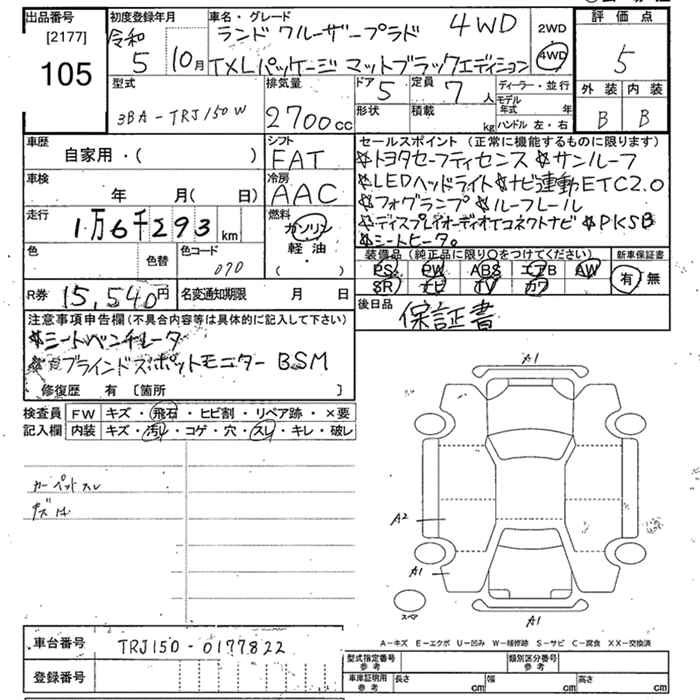 出品番号
[2177]
105
初度登録年月
令和
5 10月
車名・グレード
ランドクルーザープラド 4WD
TXLパッケージ マットブラックエディション
2WD
4WD
評価点
5
外装 内装
B B
型式
3BA-TRJ150W
排気量
2700cc
ドア 5
定員 7人
形状
積載 kg
ディーラー・並行
モデル年式 年
ハンドル 左・右
車歴
自家用・( )
シフト
FAT
車検
年 月(日)
冷房
AAC
走行
1万6千293km
燃料
ガソリン
軽油・
( )
色
色替
色コード
070
R券 15,540円
名変通知期限 月 日
セールスポイント(正常に機能するものに限ります)
☆トヨタセーフティセンス ☆サンルーフ
☆LEDヘッドライト☆ナビ連動ETC2.0
☆フォグランプ☆ルーフレール
☆ディスプレイオーディオTコネクトナビ☆PKSB
☆シートヒータ。
装備品(純正品に限り○をつけてください)
新車保証書
PS PW ABS エアB AW
SR ナビ TV カワ
有・無
後日品
保証書
注意事項申告欄(不具合内容等は具体的に記入して下さい)
☆シートベンチレータ
☆ブラインドスポットモニター BSM
修復歴 有〔箇所 〕
検査員 FW キズ・飛石・ヒビ割・リペア跡・×要
記入欄 内装 キズ・汚レ・コゲ・穴・スレ・キレ・破レ
カーペットスレ
A1
A2
A1
A1
スペア
A-キズ E-エクボ U-凹み W-補修跡 S-サビ C-腐食 XX-交換済
車台番号 TRJ150-0177822
登録番号
型式指定番号
参考
類別区分番号
参考
車庫証明用
参考
長さ cm 幅 cm 高さ cm